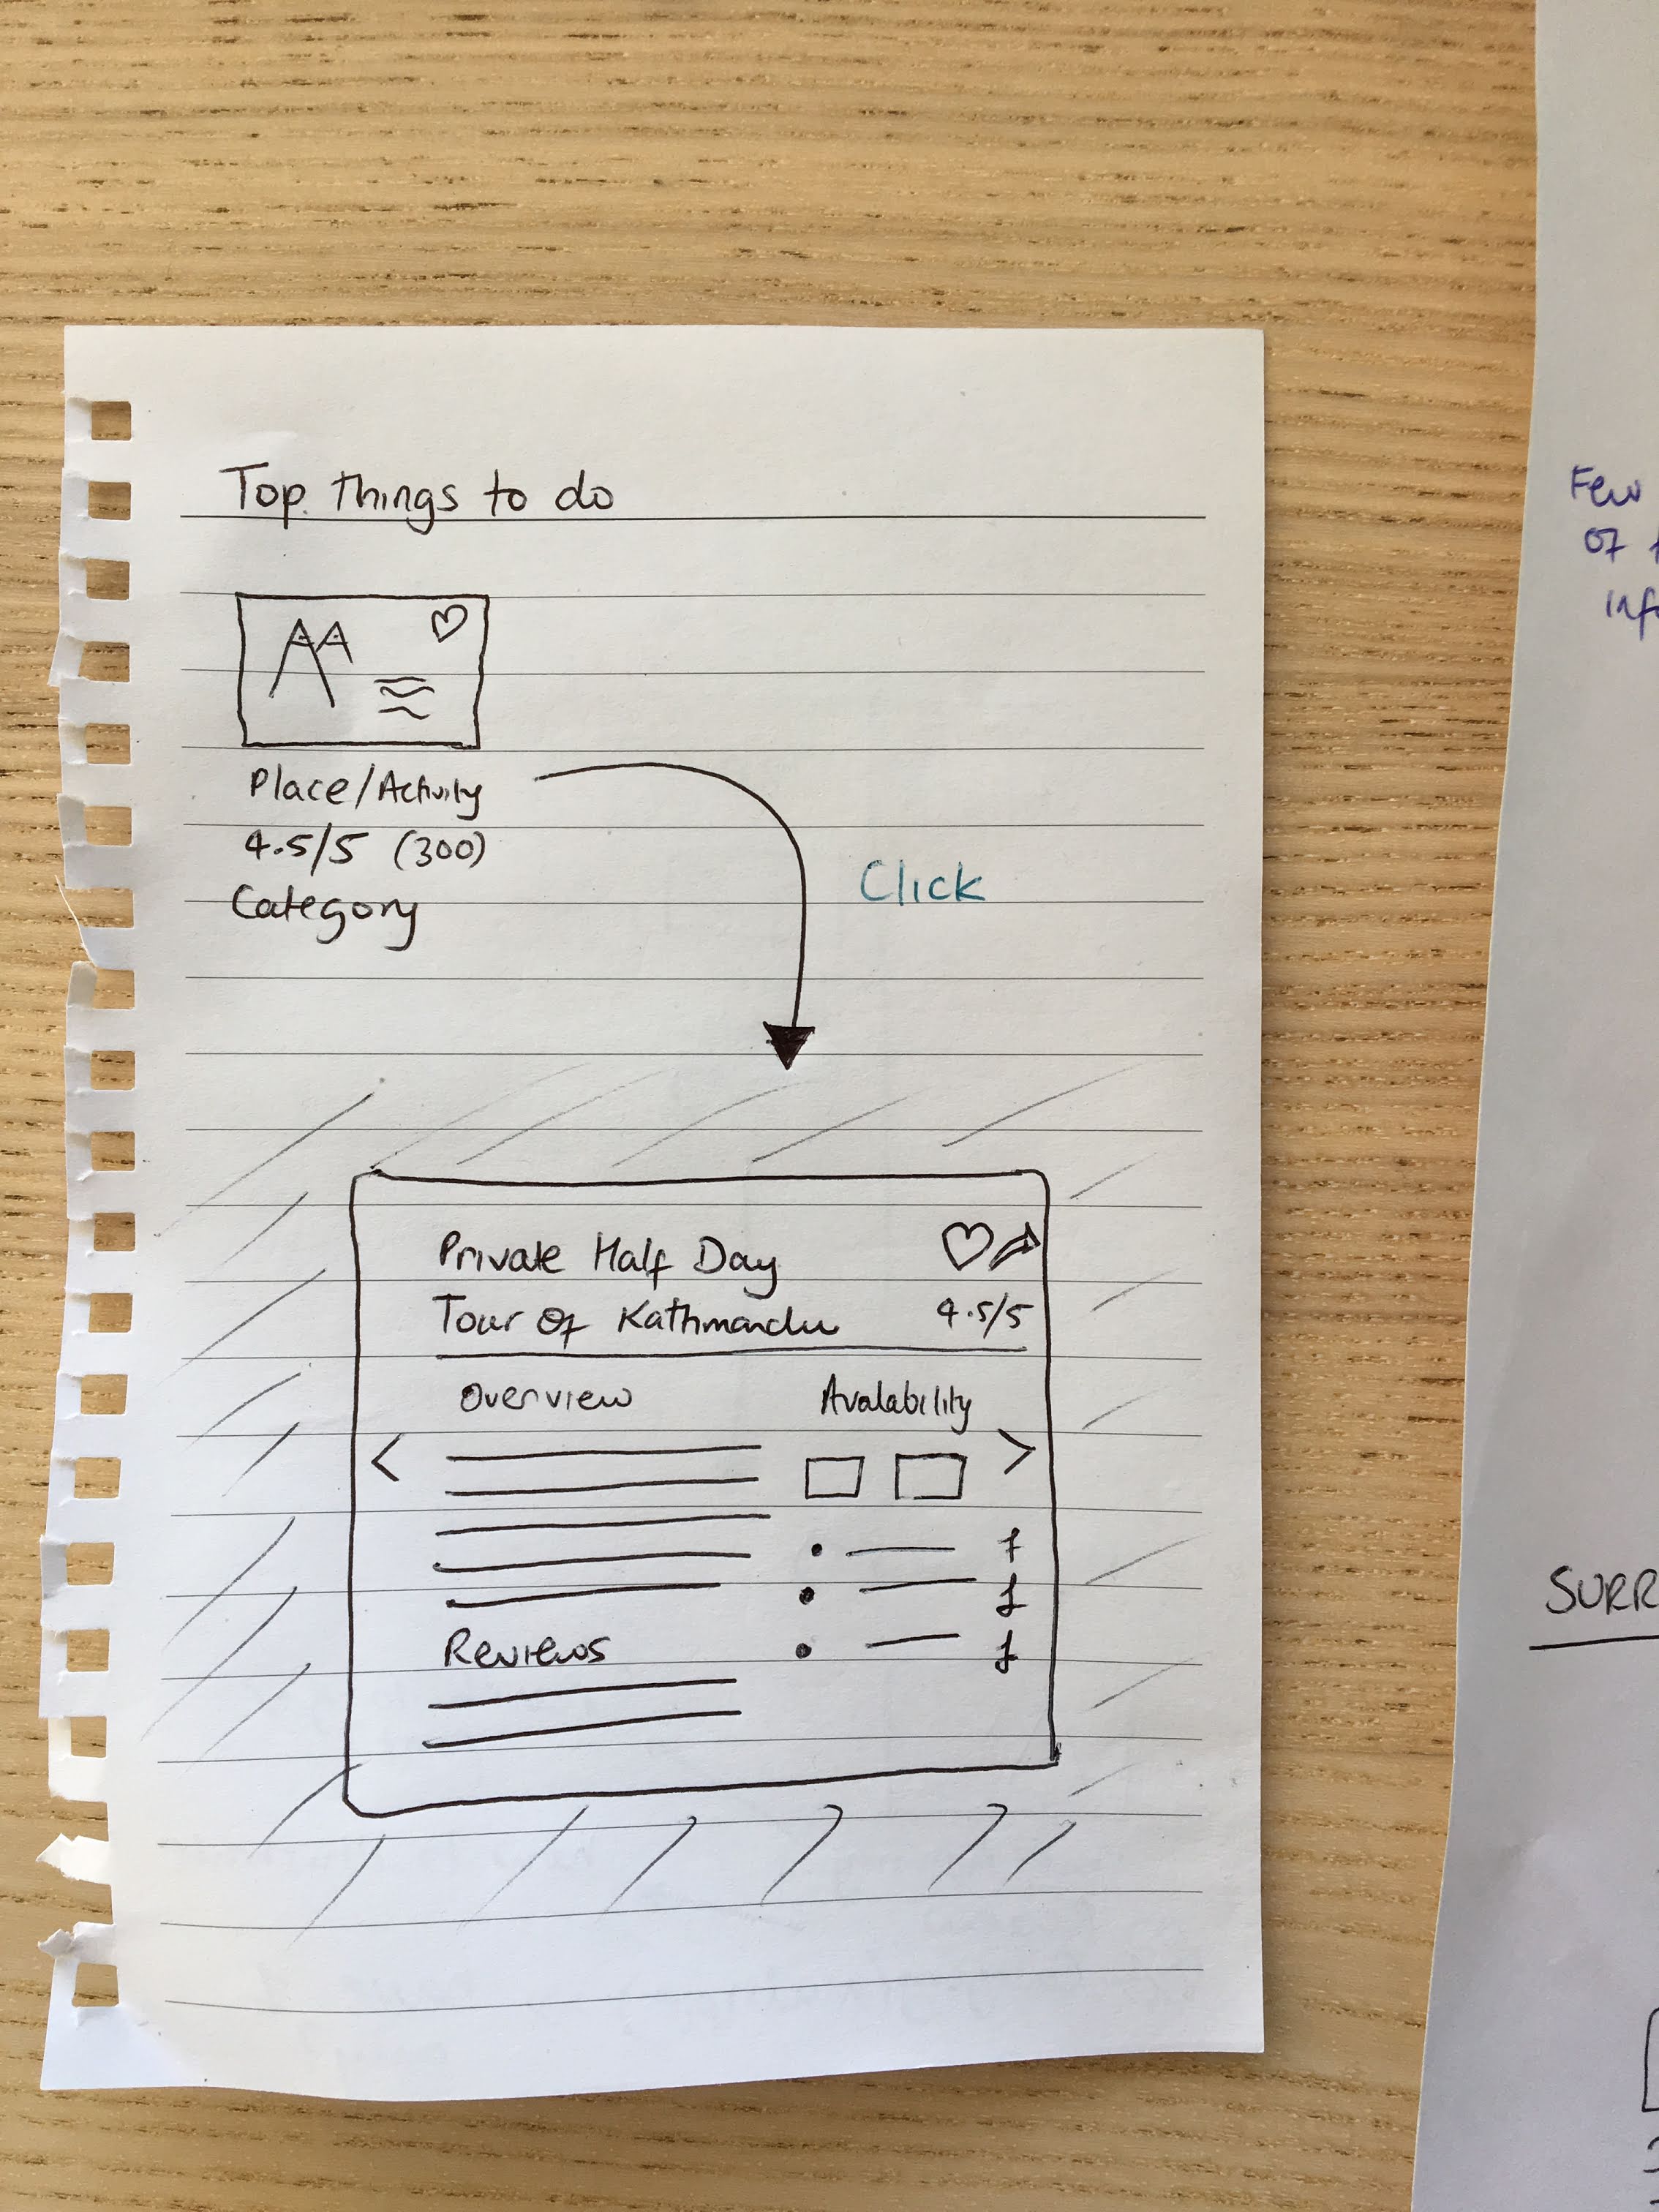 Top things to do
Place/Activity
4.5/5 (300)
Category
Click
Private Half Day
Tour of Kathmandu
4.5/5
Overview
Avalability
< >
£
£
£
Reviews
Few
of
SURR